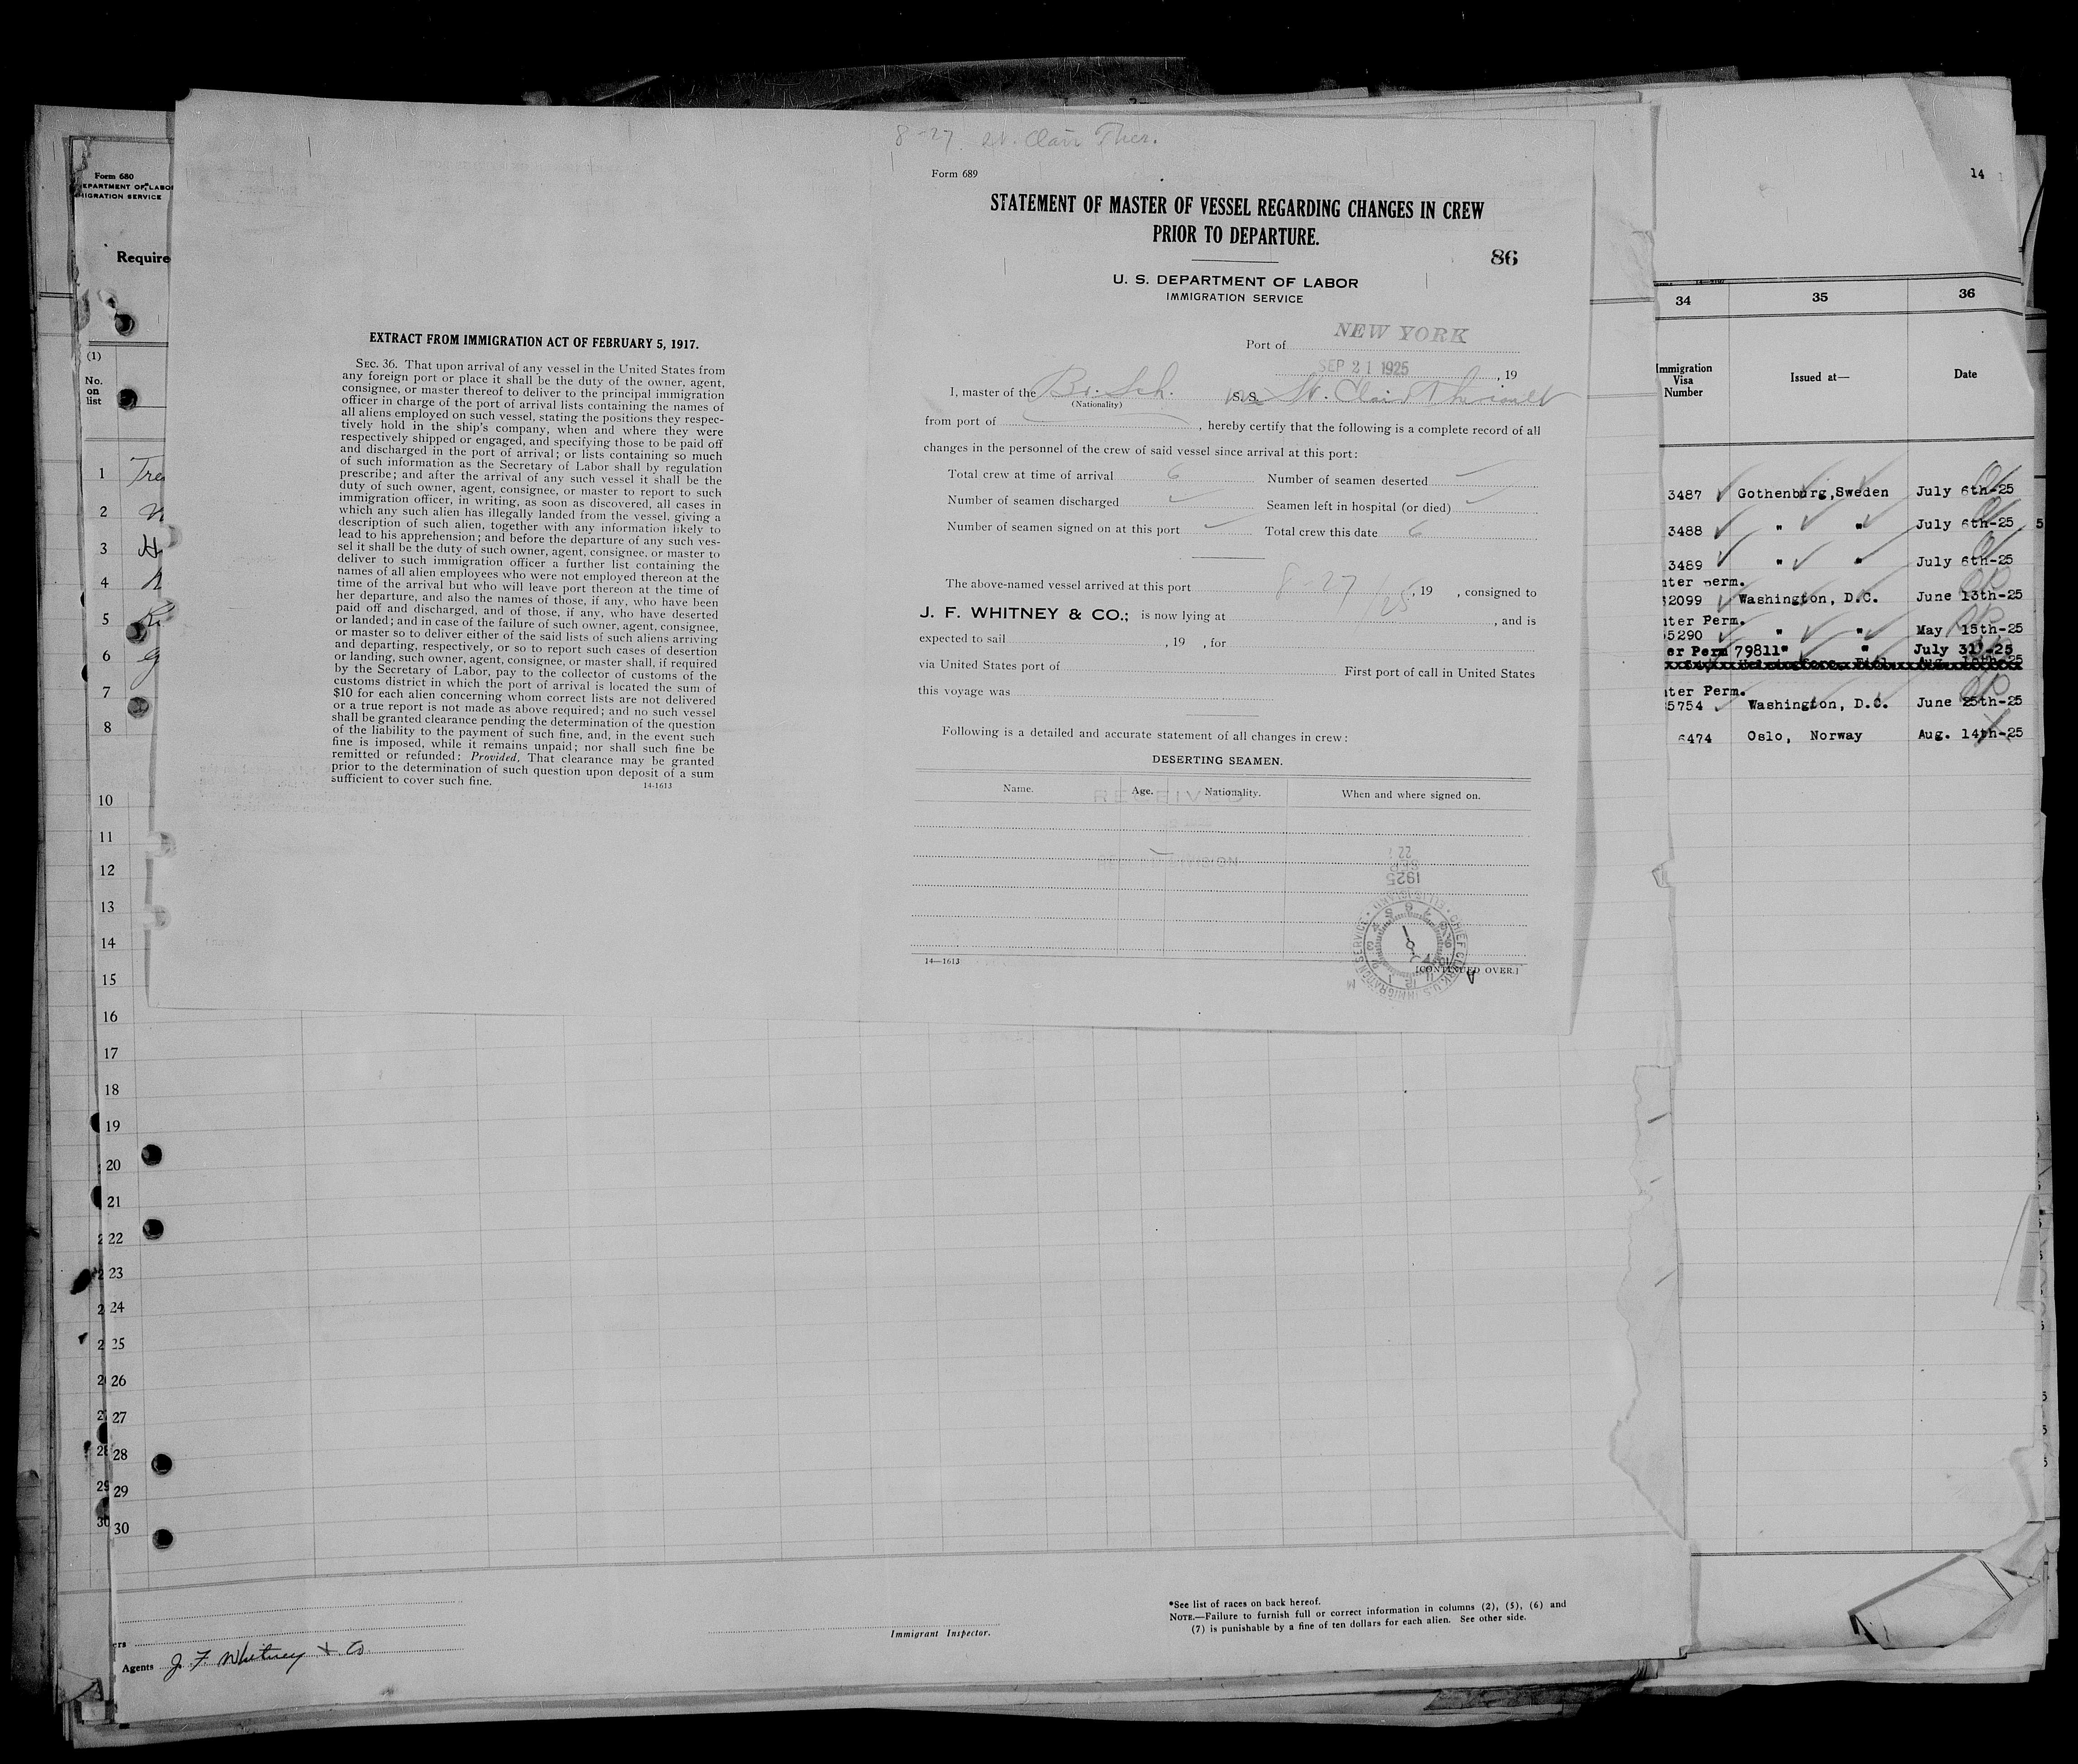 Form 680
EPARTMENT OF LABO
IGRATION SERVICE
Require
(1)
No.
on
list
1
2
3
4
5
6
7
8
10
11
12
13
14
15
16
17
18
19
20
21
22
23
24
25
26
27
28
29
30
Agents J. F. Whitney & Co.
Immigrant Inspector.
*See list of races on back hereof.
NOTE.—Failure to furnish full or correct information in columns (2), (5), (6) and
(7) is punishable by a fine of ten dollars for each alien. See other side.
EXTRACT FROM IMMIGRATION ACT OF FEBRUARY 5, 1917.
SEC. 36. That upon arrival of any vessel in the United States from
any foreign port or place it shall be the duty of the owner, agent,
consignee, or master thereof to deliver to the principal immigration
officer in charge of the port of arrival lists containing the names of
all aliens employed on such vessel, stating the positions they respec-
tively hold in the ship's company, when and where they were
respectively shipped or engaged, and specifying those to be paid off
and discharged in the port of arrival; or lists containing so much
of such information as the Secretary of Labor shall by regulation
prescribe; and after the arrival of any such vessel it shall be the
duty of such owner, agent, consignee, or master to report to such
immigration officer, in writing, as soon as discovered, all cases in
which any such alien has illegally landed from the vessel, giving a
description of such alien, together with any information likely to
lead to his apprehension; and before the departure of any such ves-
sel it shall be the duty of such owner, agent, consignee, or master to
deliver to such immigration officer a further list containing the
names of all alien employees who were not employed thereon at the
time of the arrival but who will leave port thereon at the time of
her departure, and also the names of those, if any, who have been
paid off and discharged, and of those, if any, who have deserted
or landed; and in case of the failure of such owner, agent, consignee,
or master so to deliver either of the said lists of such aliens arriving
and departing, respectively, or so to report such cases of desertion
or landing, such owner, agent, consignee, or master shall, if required
by the Secretary of Labor, pay to the collector of customs of the
customs district in which the port of arrival is located the sum of
$10 for each alien concerning whom correct lists are not delivered
or a true report is not made as above required; and no such vessel
shall be granted clearance pending the determination of the question
of the liability to the payment of such fine, and, in the event such
fine is imposed, while it remains unpaid; nor shall such fine be
remitted or refunded: Provided, That clearance may be granted
prior to the determination of such question upon deposit of a sum
sufficient to cover such fine.
14-1613
8-27 St. Clair Ther.
Form 689
STATEMENT OF MASTER OF VESSEL REGARDING CHANGES IN CREW
PRIOR TO DEPARTURE.
86
U. S. DEPARTMENT OF LABOR
IMMIGRATION SERVICE
Port of NEW YORK
SEP 21 1925, 19
I, master of the Br. Sch. S. S. St. Clair Theriault
(Nationality)
from port of , hereby certify that the following is a complete record of all
changes in the personnel of the crew of said vessel since arrival at this port:
Total crew at time of arrival 6 Number of seamen deserted
Number of seamen discharged Seamen left in hospital (or died)
Number of seamen signed on at this port Total crew this date 6
The above-named vessel arrived at this port 8 27 / 25, 19 , consigned to
J. F. WHITNEY & CO.; is now lying at , and is
expected to sail , 19 , for
via United States port of First port of call in United States
this voyage was
Following is a detailed and accurate statement of all changes in crew:
DESERTING SEAMEN.
Name. Age. Nationality. When and where signed on.
RECEIVED
DIVISION
SEP 22
1925
CHIEF CLERK U.S. IMMIGRATION SERVICE • ELLIS ISLAND •
14—1613
[CONTINUED OVER.]
14
34 35 36
Immigration
Visa
Number
Issued at—
Date
3487 Gothenburg,Sweden July 6th-25
3488 " " July 6th-25
3489 " " July 6th-25
nter perm.
2099 Washington, D.C. June 13th-25
nter Perm.
5290 " " May 15th-25
er Perm 79811" " July 31-25
nter Perm.
5754 Washington, D.C. June 25th-25
6474 Oslo, Norway Aug. 14th-25